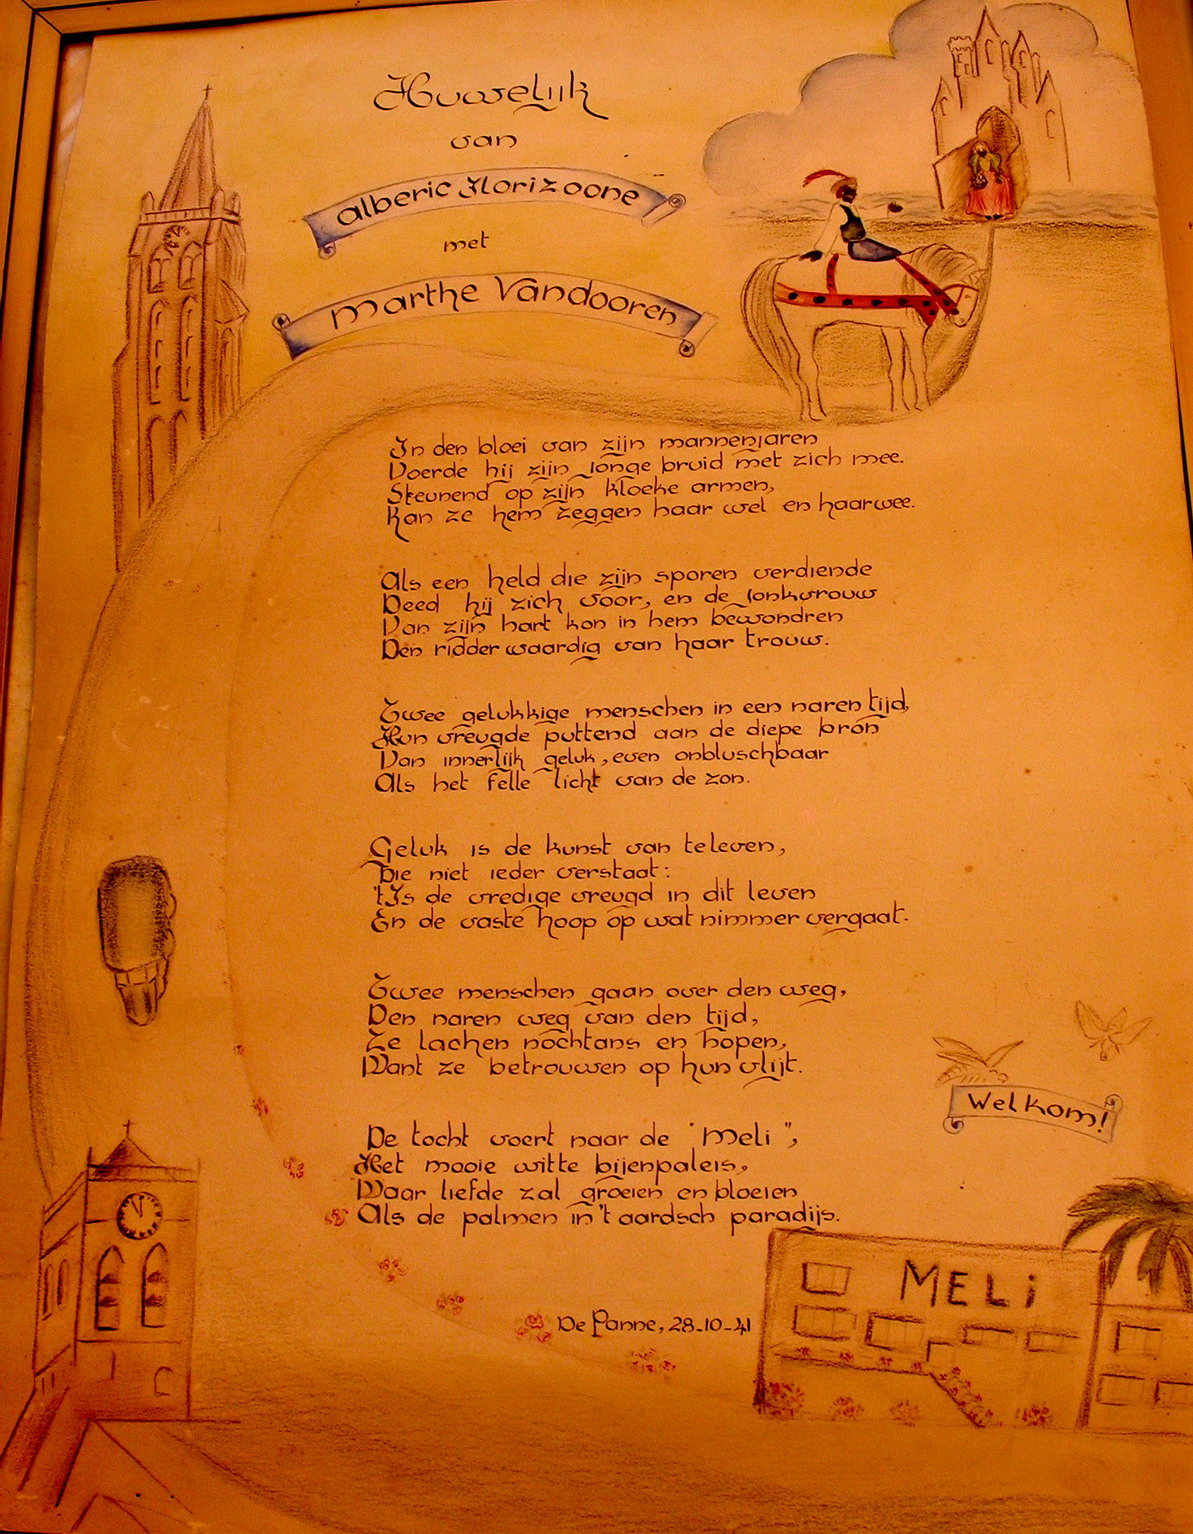 Huwelijk
van
Alberic Florizoone
met
Marthe Vandooren
In den bloei van zijn mannenjaren
Voerde hij zijn jonge bruid met zich mee.
Steunend op zijn kloeke armen,
Kan ze hem zeggen haar wel en haar wee.
Als een held die zijn sporen verdiende
Deed hij zich voor, en de jonkvrouw
Van zijn hart kon in hem bewondren
Den ridder waardig van haar trouw.
Twee gelukkige menschen in een naren tijd,
Hun vreugde puttend aan de diepe bron
Van innerlijk geluk, even onbluschbaar
Als het felle licht van de zon.
Geluk is de kunst van te leven,
Die niet ieder verstaat:
't Is de vredige vreugd in dit leven
En de vaste hoop op wat nimmer vergaat.
Twee menschen gaan over den weg,
Den naren weg van den tijd,
Ze lachen nochtans en hopen,
Want ze betrouwen op hun vlijt.
Welkom!
De tocht voert naar de "Meli",
Het mooie witte bijenpaleis,
Waar liefde zal groeien en bloeien
Als de palmen in 't aardsch paradijs.
MELi
De Panne, 28-10-41